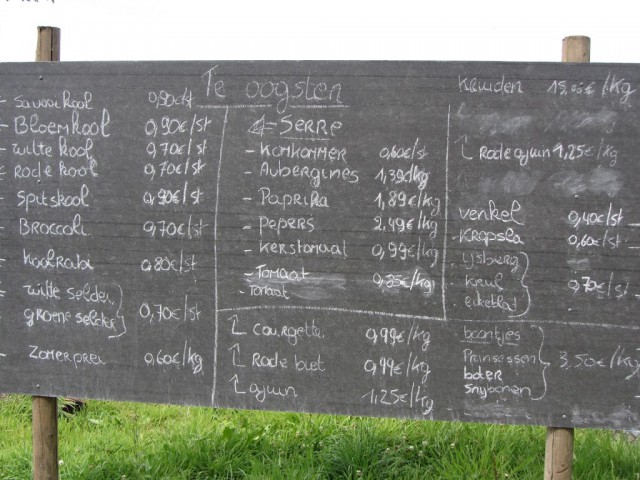 Te oogsten
- Savooikool 0,90€/st
- Bloemkool 0,90€/st
- witte kool 0,70€/st
- rode kool 0,70€/st
- Spitskool 0,90€/st
- Broccoli 0,70€/st
- koolrabi 0,80€/st
- witte selder
groene selder 0,70€/st
- Zomerprei 0,60€/kg
Serre
- Komkommer 0,60€/st
- Aubergines 1,39€/kg
- Paprika 1,89€/kg
- Pepers 2,49€/kg
- kerstomaat 0,99€/kg
- Tomaat
- Tomaat
Courgette 0,99€/kg
Rode biet 0,99€/kg
ajuin 1,25€/kg
Kruiden /kg
Rode ajuin 1,25€/kg
venkel 0,40€/st
kropsla 0,60€/st
ijsberg
krul 0,70€/st
eikeblad
boontjes
Prinsessen 3,50€/kg
boter
snijbonen